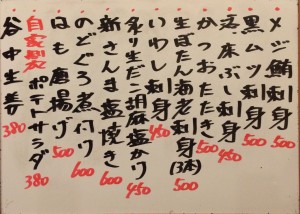 メジ鮪刺身 500
黒ムツ刺身 500
活床ぶし刺身
かつおたたき 500
生ぼたん海老刺身(3本) 500
いわし刺身 450
炙り生だこ胡麻塩かけ 450
新さんま塩焼き 600
のどぐろ煮付け 600
はも唐揚げ 500
自家製ポテトサラダ 380
谷中生姜 380